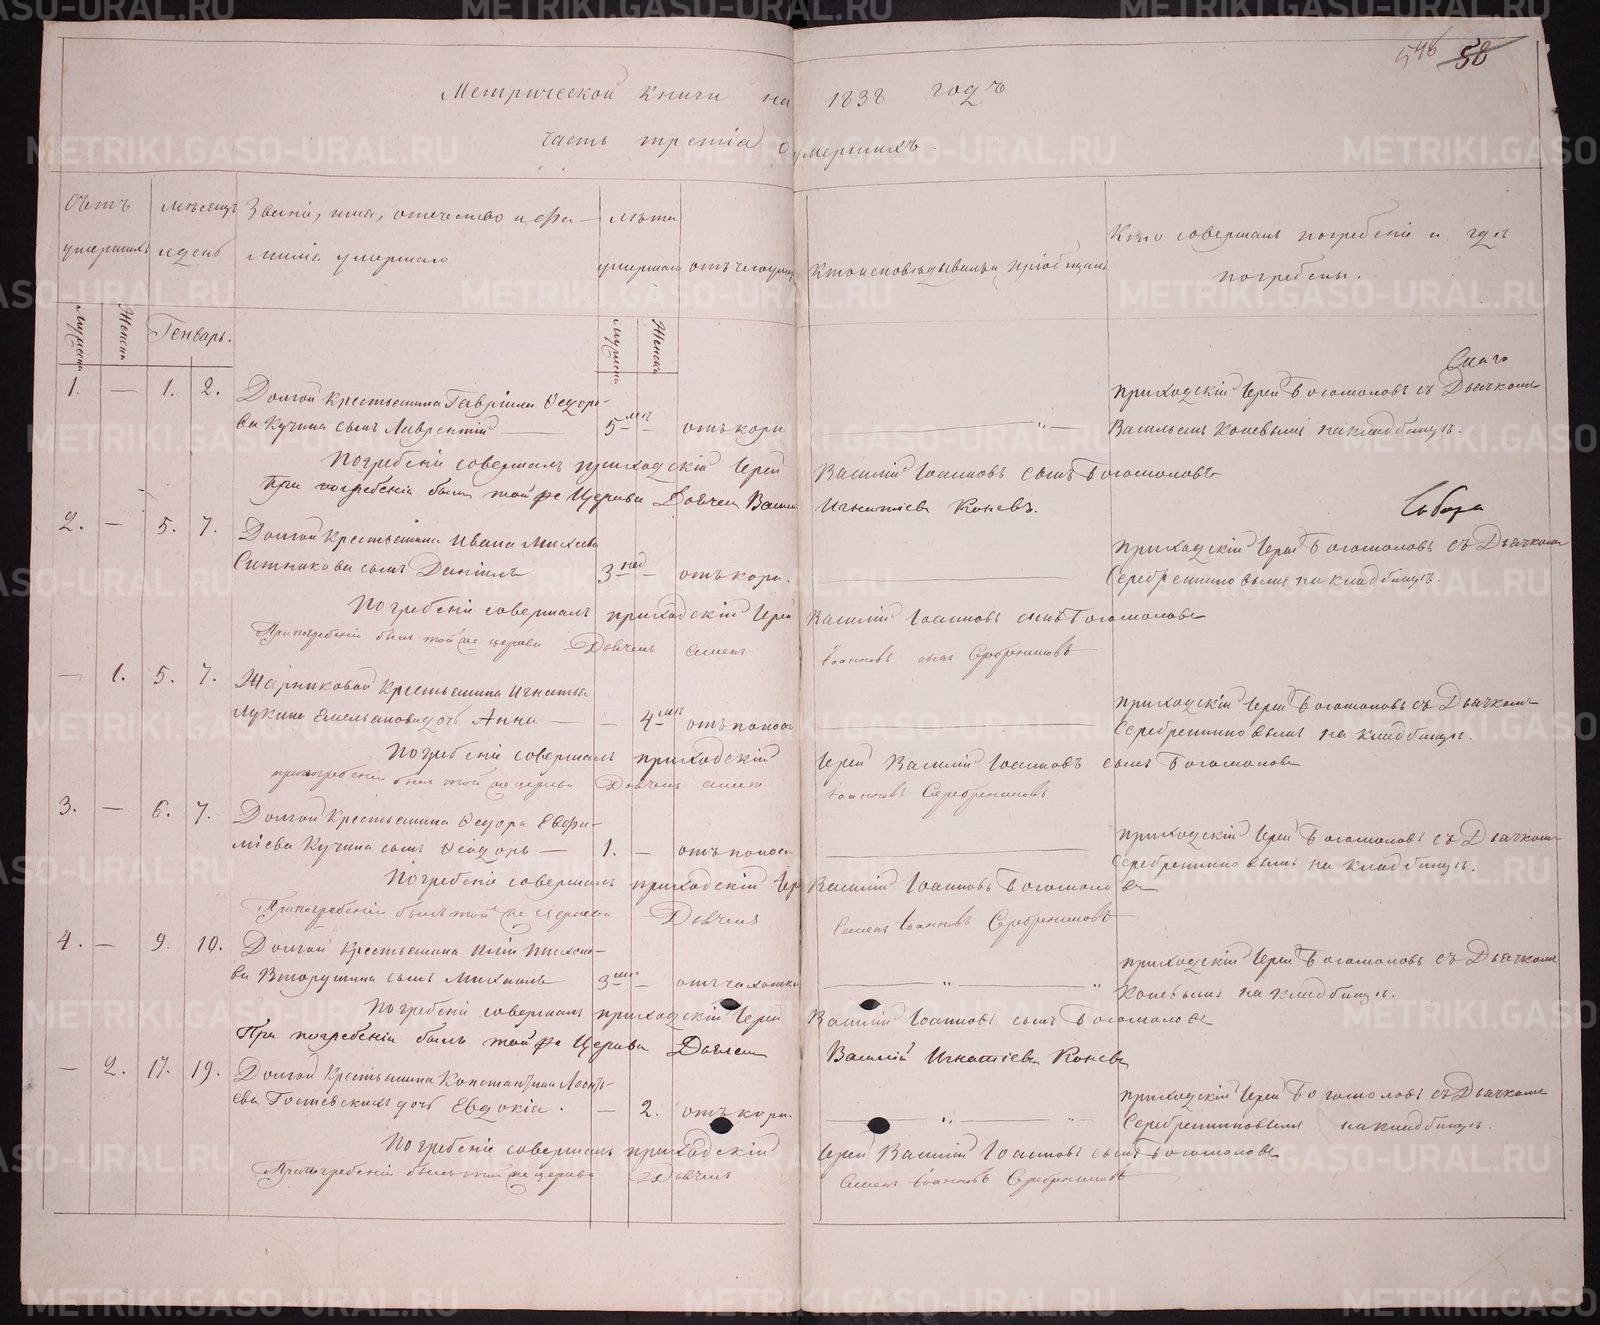 546 58
Метрической книги на 1838 годъ
часть третія о умершихъ.
Счетъ умершихъ
мѣсяцъ и день
Званіе, имя, отечество и фа-
милія умершаго
лѣта умершаго
отъ чего умер
Кто исповѣдывалъ и пріобщалъ
Кто совершалъ погребеніе и гдѣ
погребены.
Мужеска Женска Генварь. Мужеска Женска
1. — 1. 2. Долгой Крестьянина Гавріила Ѳедоро-
ва Кучина сынъ Лаврентій 5 мѣ — отъ кори
приходскій Іерей Богомоловъ съ Дьячкомъ
Васильемъ Коневымъ на кладбищѣ.
Погребеніе совершалъ приходскій Іерей Василій Іоанновъ сынъ Богомоловъ
При погребеніи былъ той же Церкви Дьячекъ Василій Игнатіевъ Коневъ.
2. — 5. 7. Долгой Крестьянина Ивана Михеева
Ситникова сынъ Даніилъ 3 нед — отъ кори.
приходскій Іерей Богомоловъ съ Дьячкомъ
Серебренниковымъ на кладбищѣ.
Погребеніе совершалъ приходскій Іерей Василій Іоанновъ сынъ Богомоловъ
При погребеніи былъ той же церкви Дьячекъ Семенъ Іоанновъ сынъ Серебрениковъ
— 1. 5. 7. Жерниковой Крестьянина Игнатья
Лукина Емельянова дочь Анна — — 4 мѣс отъ поноса
приходскій Іерей Богомоловъ съ Дьячкомъ
Серебренниковымъ на кладбищѣ.
Погребеніе совершалъ приходскій Іерей Василій Іоанновъ сынъ Богомоловъ
при погребеніи былъ той же церкви Дьячекъ Семенъ Іоанновъ Серебрениковъ
3. — 6. 7. Долгой Крестьянина Ѳедора Евфи-
міева Кучина сынъ Ѳеодоръ — 1. — отъ поноса
приходскій Іерей Богомоловъ съ Дьячкомъ
Серебренниковымъ на кладбищѣ.
Погребеніе совершалъ приходскій Іерей Василій Іоанновъ Богомоловъ
При погребеніи былъ той же церкви Дьячекъ Семенъ Іоанновъ Серебрениковъ
4. — 9. 10. Долгой Крестьянина Иліи Тихоно-
ва Вторушина сынъ Михаилъ 3 мѣс — отъ чахотки
приходскій Іерей Богомоловъ съ Дьячкомъ
Коневымъ на кладбищѣ.
Погребеніе совершалъ приходскій Іерей Василій Іоанновъ сынъ Богомоловъ
При погребеніи былъ той же Церкви Дьячекъ Василій Игнатіевъ Коневъ
— 2. 17. 19. Долгой Крестьянина Константина Леонть-
ева Гостевскихъ дочь Евдокія. — 2. отъ кори.
приходскій Іерей Богомоловъ съ Дьячкомъ
Серебренниковымъ на кладбищѣ.
Погребеніе совершалъ приходскій Іерей Василій Іоанновъ сынъ Богомоловъ
При погребеніи былъ той же церкви Дьячекъ Семенъ Іоанновъ Серебрениковъ
METRIKI.GASO-URAL.RU